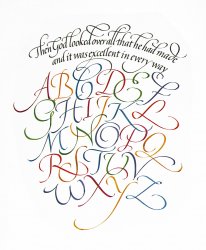 Then God looked over all that he had made
and it was excellent in every way
ABCDEF
GHIJKL
MNOPQ
RSTUV
WXYZ